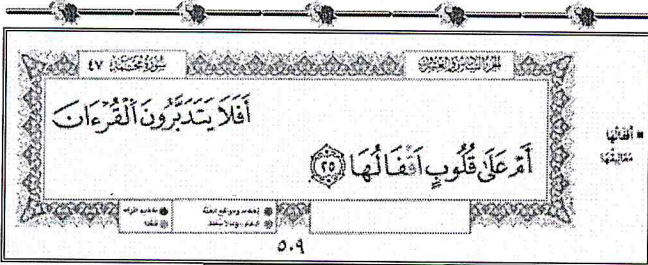 سُورَةُ مُحَمَّدٍ ٤٧
الجزء السادس والعشرون
أَفَلَا يَتَدَبَّرُونَ ٱلْقُرْءَانَ
أَمْ عَلَىٰ قُلُوبٍ أَقْفَالُهَا ٢٥
أَقْفَالُهَا
مَغَالِيقُهَا
٥٠٩